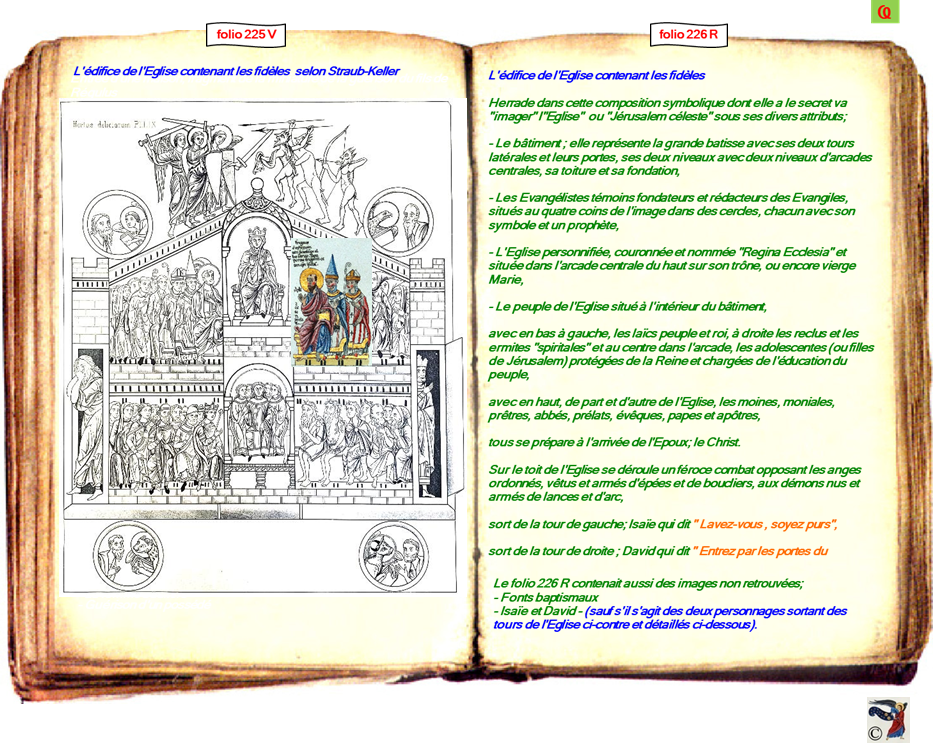 folio 225 V
L'édifice de l'Eglise contenant les fidèles selon Straub-Keller
Hortus deliciarum Pl. LIX
folio 226 R
L'édifice de l'Eglise contenant les fidèles
Herrade dans cette composition symbolique dont elle a le secret va
"imager" l'"Eglise" ou "Jérusalem céleste" sous ses divers attributs;
- Le bâtiment ; elle représente la grande batisse avec ses deux tours
latérales et leurs portes, ses deux niveaux avec deux niveaux d'arcades
centrales, sa toiture et sa fondation,
- Les Evangélistes témoins fondateurs et rédacteurs des Evangiles,
situés au quatre coins de l'image dans des cercles, chacun avec son
symbole et un prophète,
- L'Eglise personnifiée, couronnée et nommée "Regina Ecclesia" et
située dans l'arcade centrale du haut sur son trône, ou encore vierge
Marie,
- Le peuple de l'Eglise situé à l'intérieur du bâtiment,
avec en bas à gauche, les laïcs peuple et roi, à droite les reclus et les
ermites "spiritales" et au centre dans l'arcade, les adolescentes (ou filles
de Jérusalem) protégées de la Reine et chargées de l'éducation du
peuple,
avec en haut, de part et d'autre de l'Eglise, les moines, moniales,
prêtres, abbés, prélats, évêques, papes et apôtres,
tous se prépare à l'arrivée de l'Epoux; le Christ.
Sur le toit de l'Eglise se déroule un féroce combat opposant les anges
ordonnés, vêtus et armés d'épées et de boucliers, aux démons nus et
armés de lances et d'arc,
sort de la tour de gauche; Isaïe qui dit " Lavez-vous , soyez purs",
sort de la tour de droite ; David qui dit " Entrez par les portes du
Le folio 226 R contenait aussi des images non retrouvées;
- Fonts baptismaux
- Isaïe et David - (sauf s'il s'agit des deux personnages sortant des
tours de l'Eglise ci-contre et détaillés ci-dessous).
©